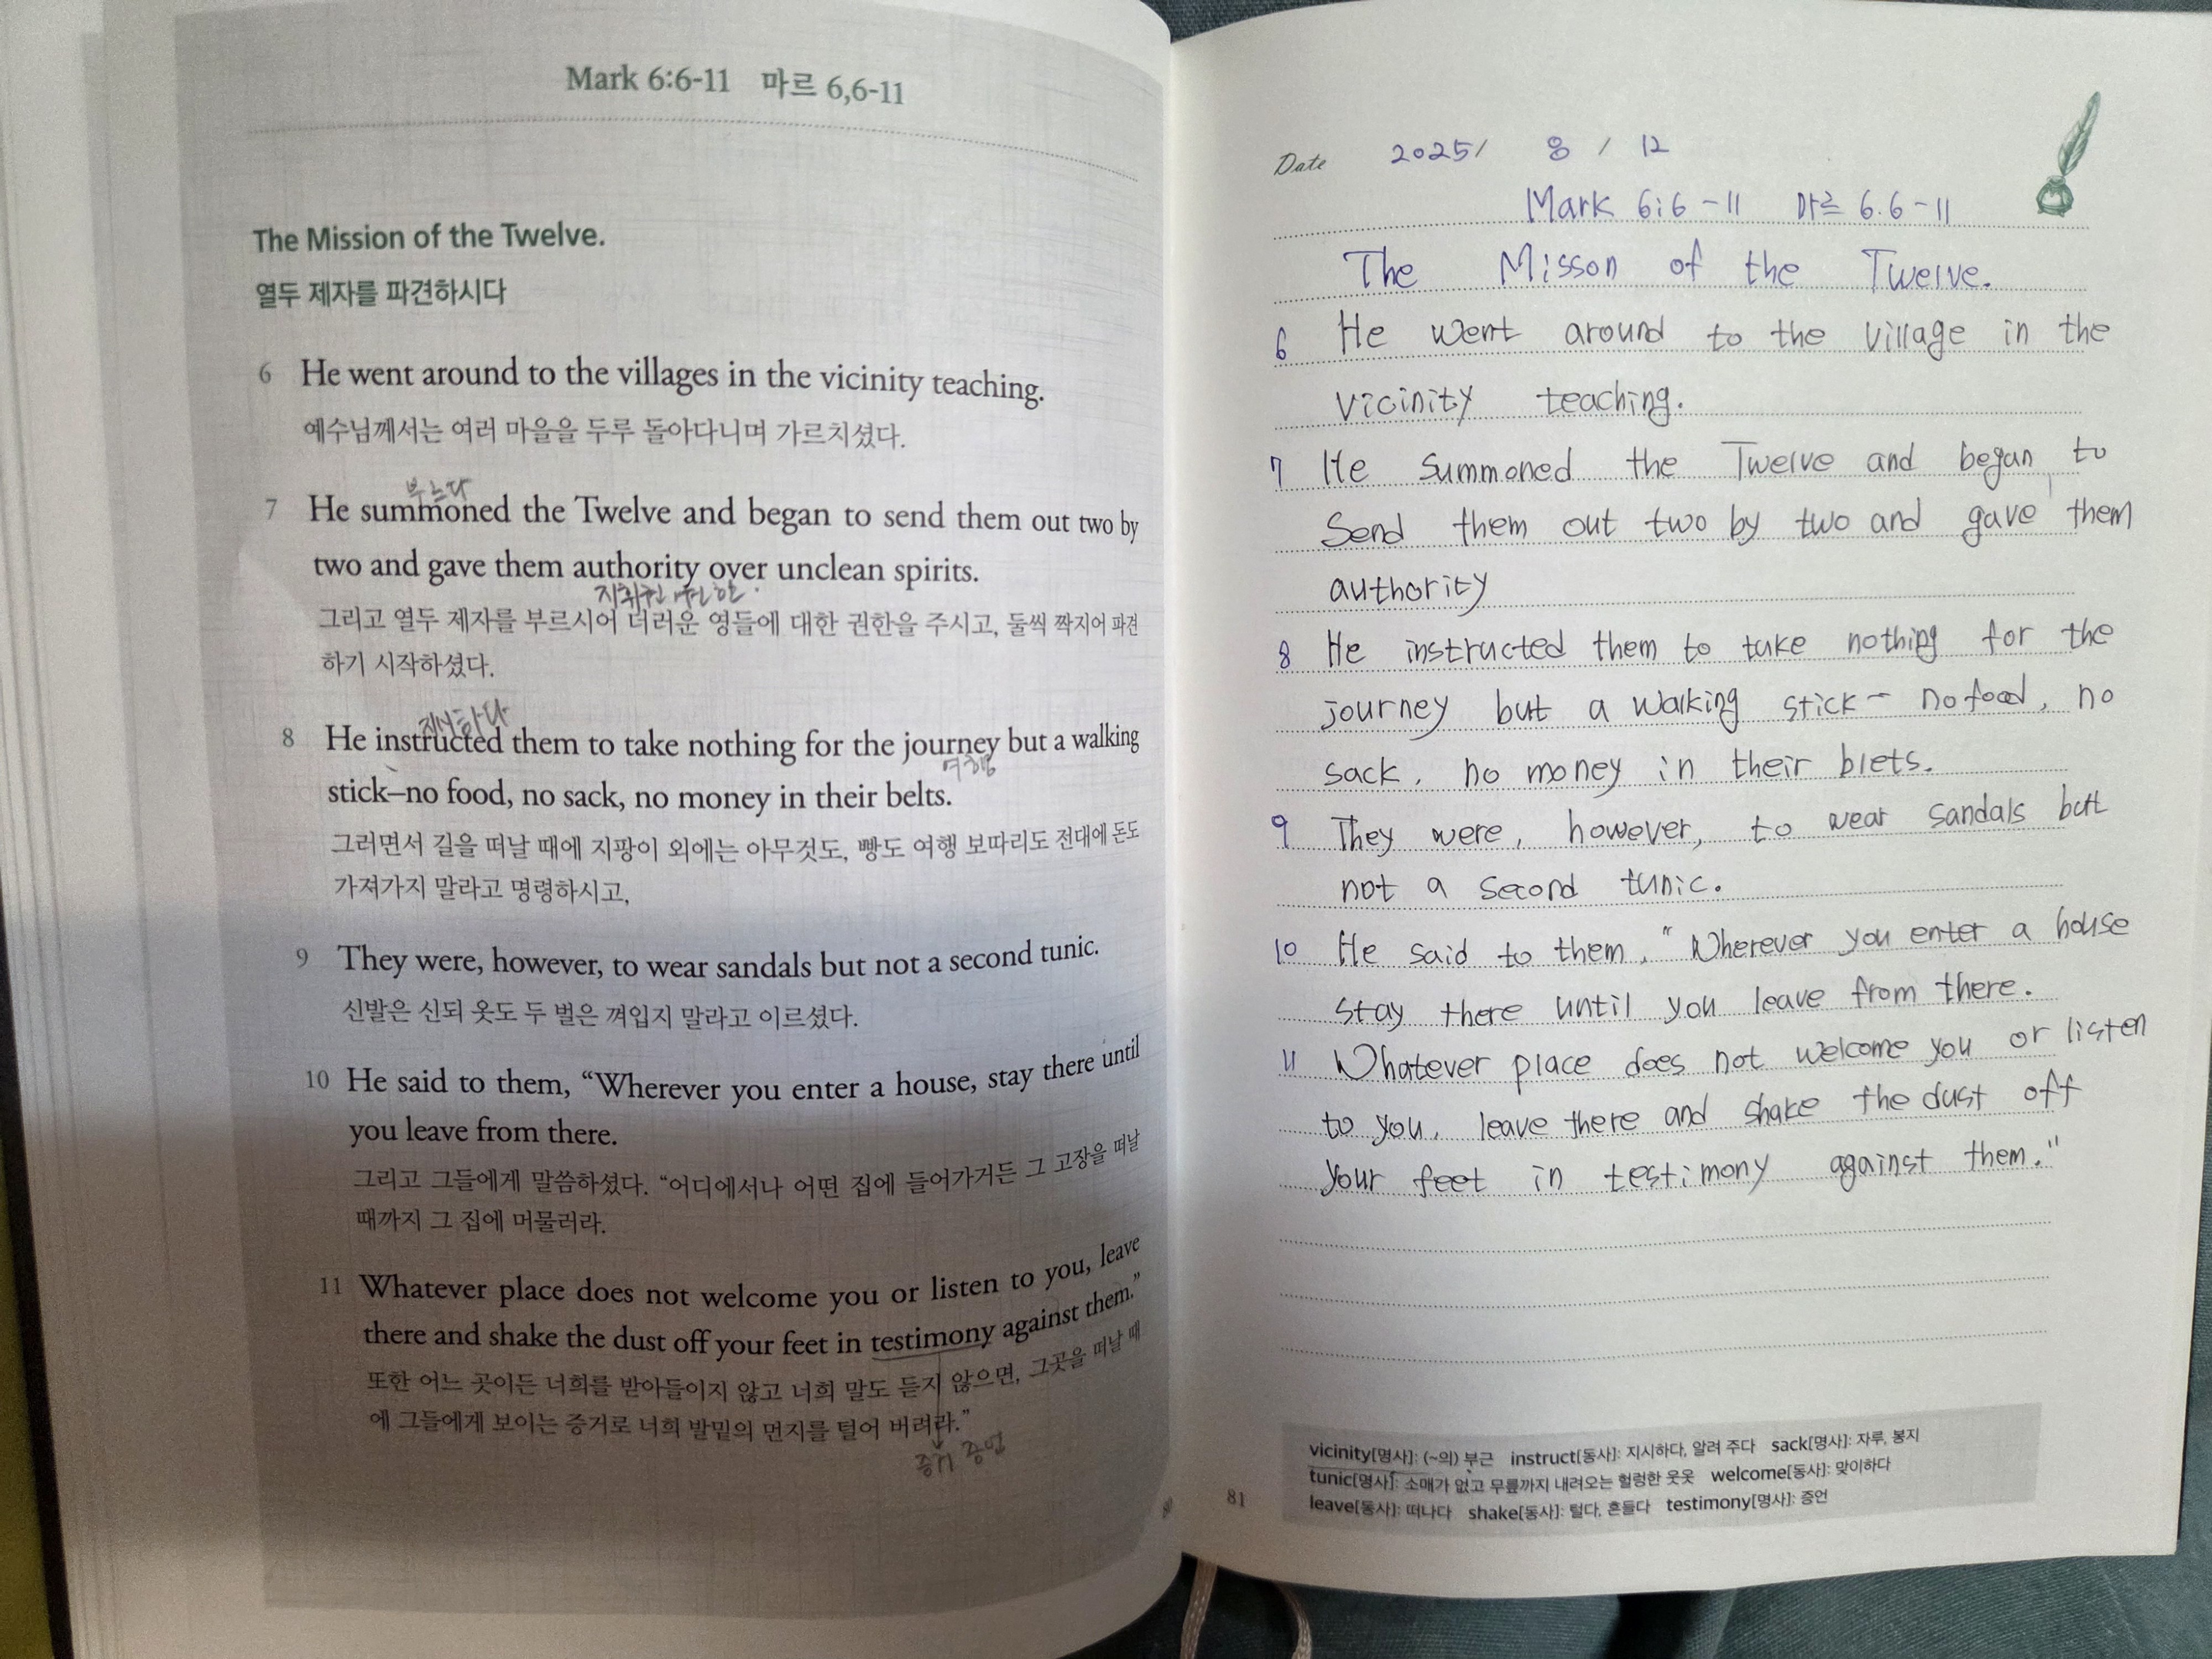 Mark 6:6-11 마르 6,6-11
The Mission of the Twelve.
열두 제자를 파견하시다
6 He went around to the villages in the vicinity teaching.
예수님께서는 여러 마을을 두루 돌아다니며 가르치셨다.
부르다
7 He summoned the Twelve and began to send them out two by
two and gave them authority over unclean spirits.
지휘권, 권한.
그리고 열두 제자를 부르시어 더러운 영들에 대한 권한을 주시고, 둘씩 짝지어 파견
하기 시작하셨다.
8 He instructed them to take nothing for the journey but a walking
여행
stick–no food, no sack, no money in their belts.
그러면서 길을 떠날 때에 지팡이 외에는 아무것도, 빵도 여행 보따리도 전대에 돈도
가져가지 말라고 명령하시고,
9 They were, however, to wear sandals but not a second tunic.
신발은 신되 옷도 두 벌은 껴입지 말라고 이르셨다.
10 He said to them, “Wherever you enter a house, stay there until
you leave from there.
그리고 그들에게 말씀하셨다. “어디에서나 어떤 집에 들어가거든 그 고장을 떠날
때까지 그 집에 머물러라.
11 Whatever place does not welcome you or listen to you, leave
there and shake the dust off your feet in testimony against them.”
또한 어느 곳이든 너희를 받아들이지 않고 너희 말도 듣지 않으면, 그곳을 떠날 때
에 그들에게 보이는 증거로 너희 발밑의 먼지를 털어 버려라.”
Date 2025/ 8 / 12
Mark 6:6-11 마르 6.6-11
The Misson of the Twelve.
6 He went around to the village in the
vicinity teaching.
7 He summoned the Twelve and began to
send them out two by two and gave them
authority
8 He instructed them to take nothing for the
journey but a walking stick - no food, no
sack, no money in their blets.
9 They were, however, to wear sandals but
not a second tunic.
10 He said to them, "Wherever you enter a house
stay there until you leave from there.
11 Whatever place does not welcome you or listen
to you, leave there and shake the dust off
your feet in testimony against them."
vicinity[명사]: (~의) 부근 instruct[동사]: 지시하다, 알려 주다 sack[명사]: 자루, 봉지
tunic[명사]: 소매가 없고 무릎까지 내려오는 헐렁한 웃옷 welcome[동사]: 맞이하다
leave[동사]: 떠나다 shake[동사]: 털다, 흔들다 testimony[명사]: 증언
81